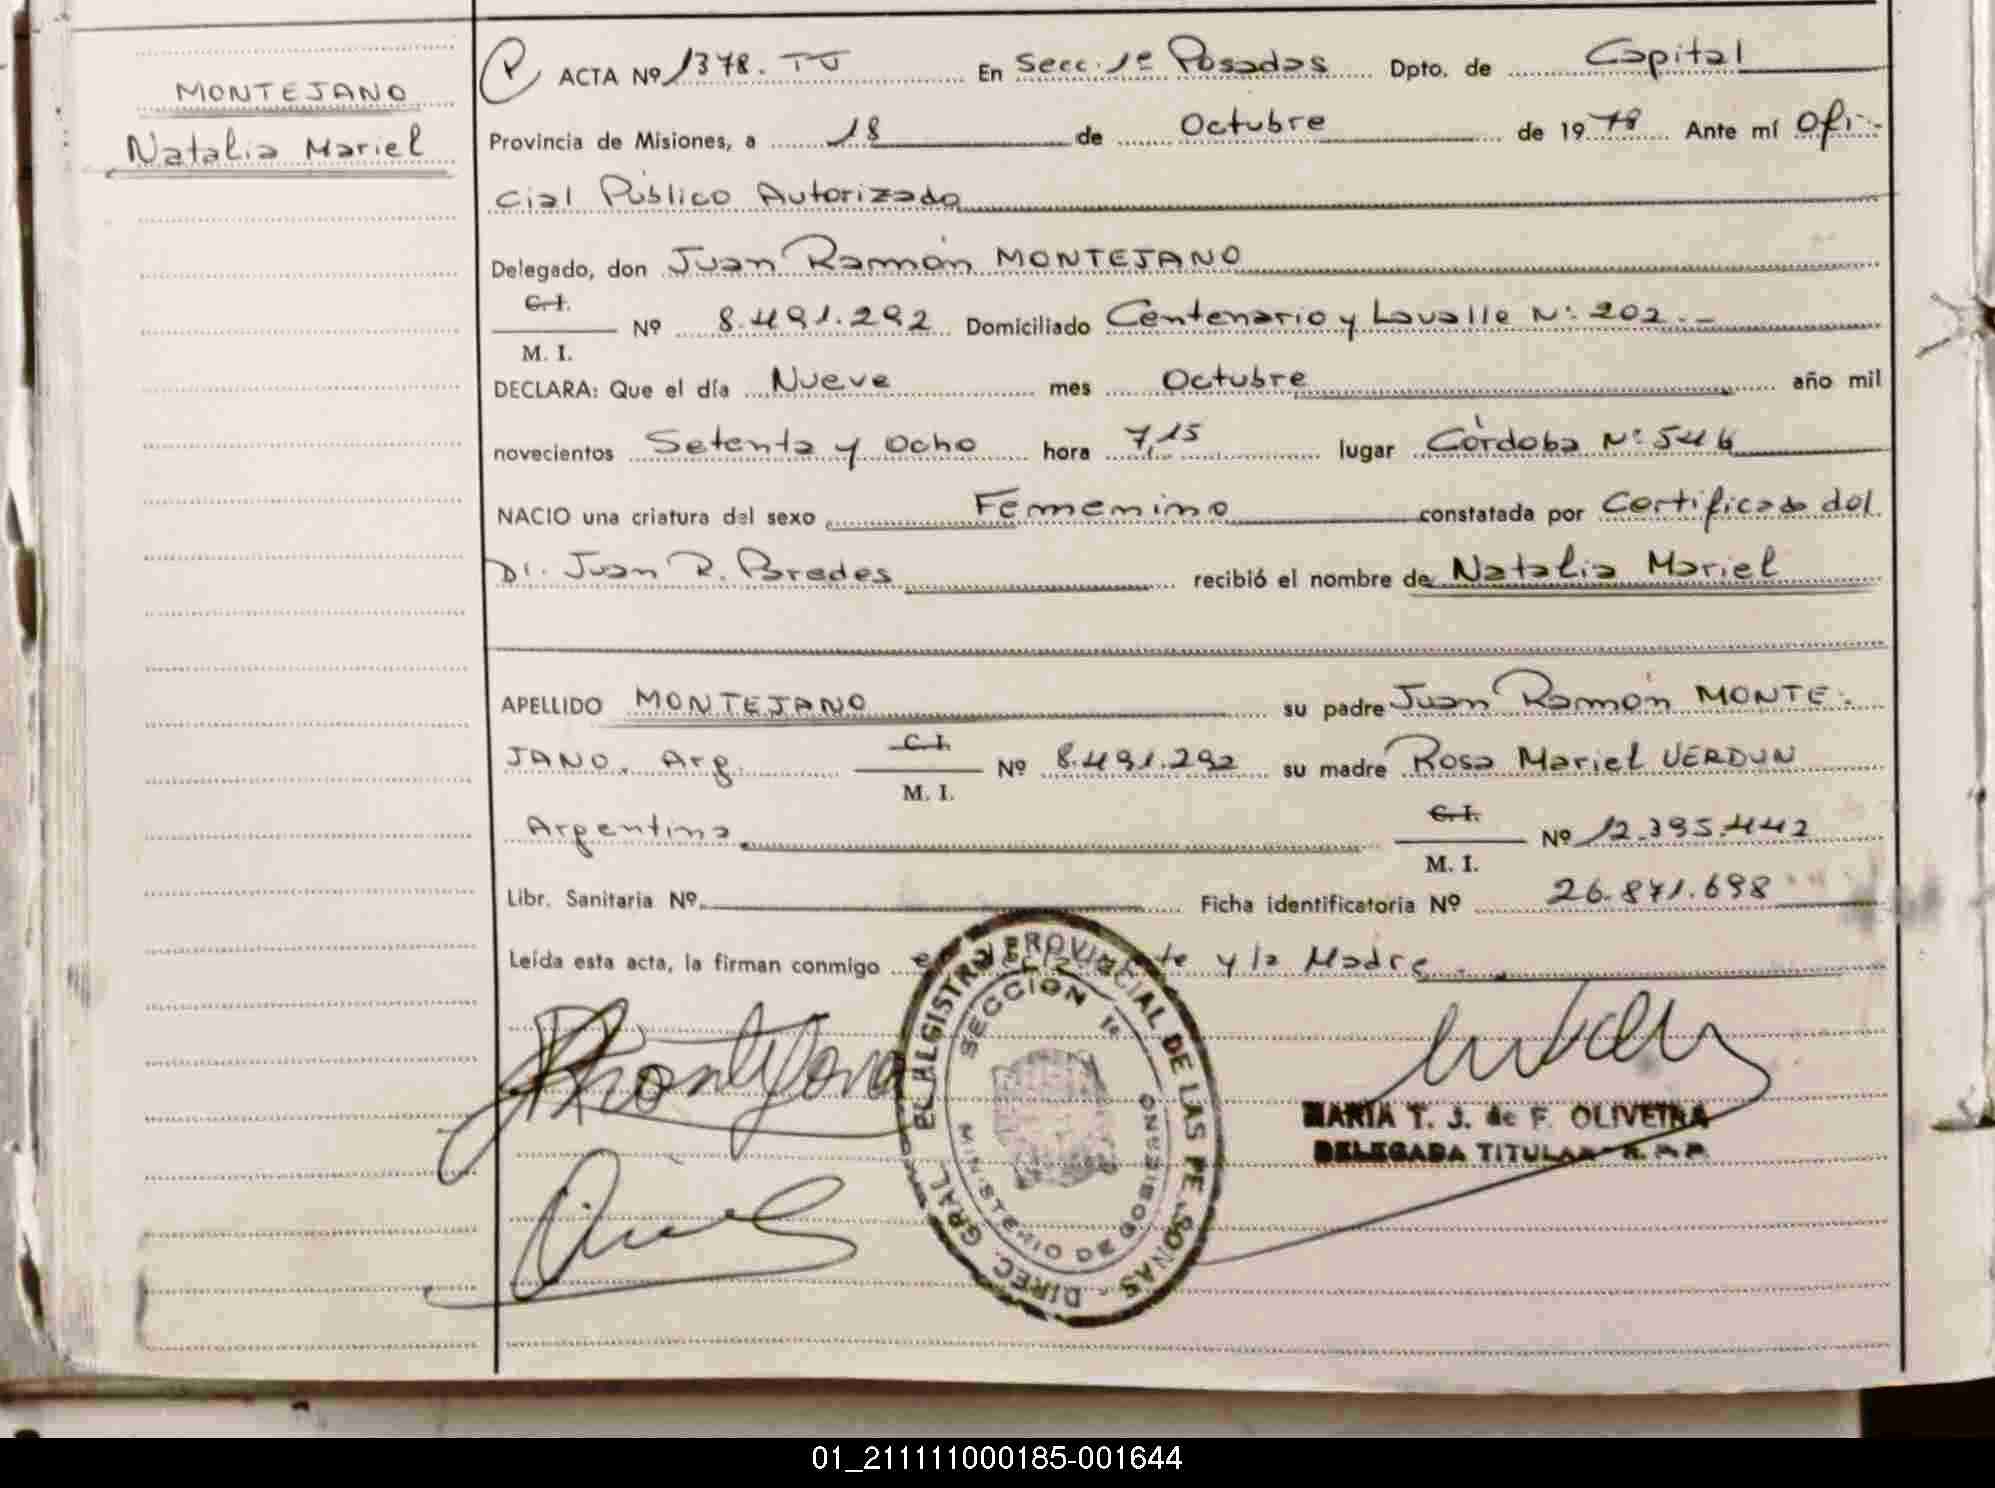 MONTEJANO
Natalia Mariel
ACTA Nº 1378. TJ En Secc. 1º Posadas Dpto. de Capital
Provincia de Misiones, a 18 de Octubre de 1978 Ante mí Ofi-
cial Público Autorizado
Delegado, don Juan Ramón MONTEJANO
C.I.
M. I. Nº 8.491.292 Domiciliado Centenario y Lavalle Nº 202.-
DECLARA: Que el día Nueve mes Octubre año mil
novecientos Setenta y Ocho hora 7,15 lugar Córdoba Nº 546
NACIO una criatura del sexo Femenino constatada por Certificado del
Dr. Juan R. Paredes recibió el nombre de Natalia Mariel
APELLIDO MONTEJANO su padre Juan Ramón MONTE-
JANO. Arg. C.I. Nº 8.491.292 su madre Rosa Mariel VERDUN
M. I.
Argentina C.I. Nº 12.395.442
M. I.
Libr. Sanitaria Nº Ficha identificatoria Nº 26.871.698
Leída esta acta, la firman conmigo y la Madre.
DIREC. GRAL. REGISTRO PROVINCIAL DE LAS PERSONAS
SECCION 1º
MINISTERIO DE GOBIERNO
MARIA T. J. de F. OLIVEIRA
DELEGADA TITULAR R.P.P.
01_211111000185-001644